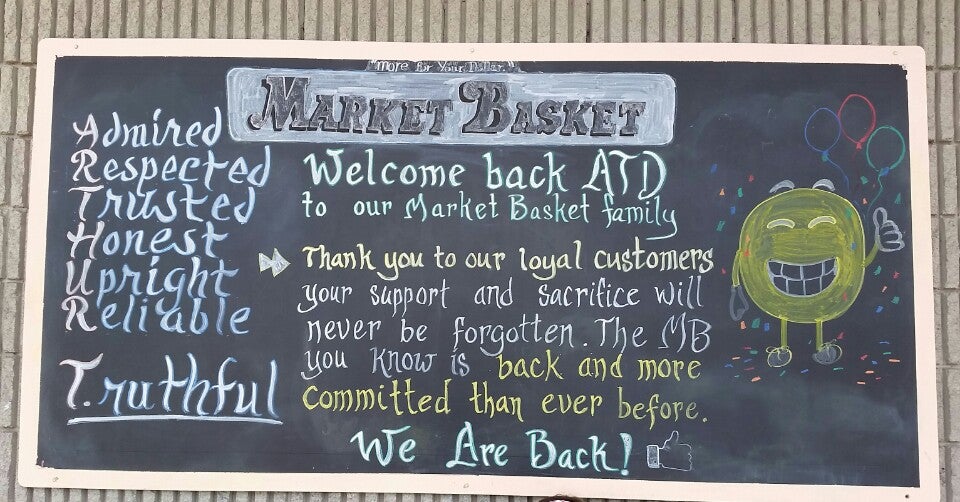 "more for Your Dollar."
MARKET BASKET
Admired
Respected
Trusted
Honest
Upright
Reliable
T.ruthful
Welcome back ATD
to our Market Basket family
Thank you to our loyal customers
your support and sacrifice will
never be forgotten. The MB
you know is back and more
committed than ever before.
We Are Back!